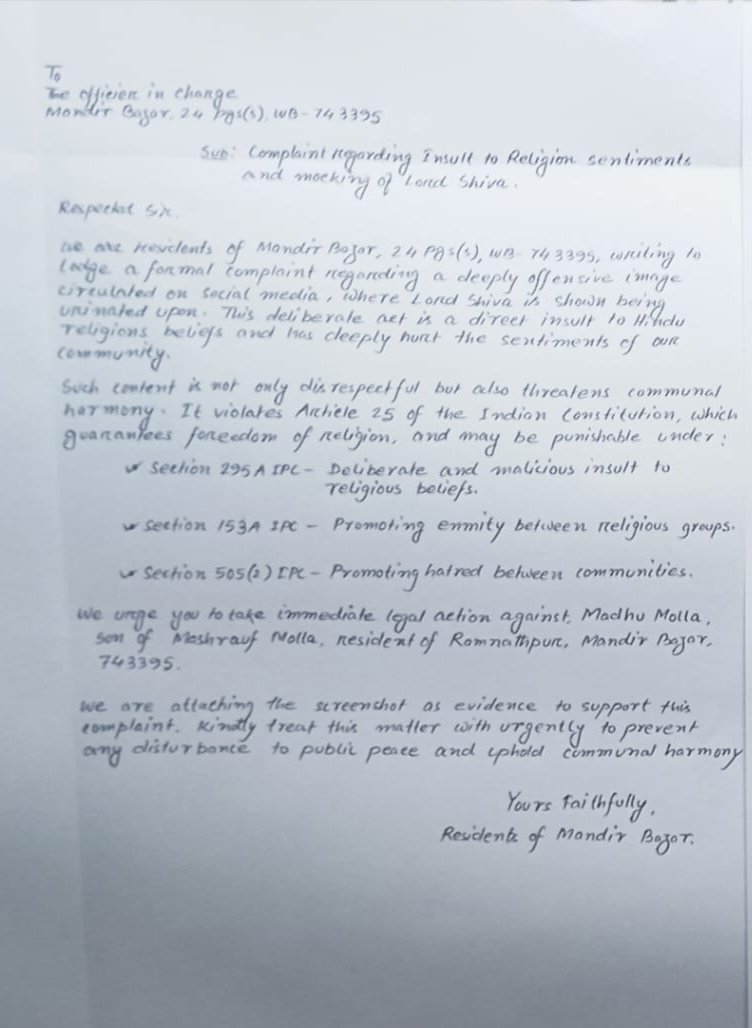 To
The officier in change
Mandir Bazar, 24 pgs(s), WB - 743395
Sub: Complaint regarding Insult to Religion sentiments
and mocking of Lord Shiva.
Respected Sir,
We are residents of Mandir Bazar, 24 Pgs(s), WB- 743395, writing to
lodge a formal complaint regarding a deeply offensive image
circulated on social media, where Lord Shiva is shown being
urinated upon. This deliberate act is a direct insult to Hindu
religions beliefs and has deeply hurt the sentiments of our
community.
Such content is not only disrespectful but also threatens communal
hormony. It violates Article 25 of the Indian Constitution, which
guarantees foreedom of religion, and may be punishable under:
✓ Section 295A IPC - Deliberate and malicious insult to
religious beliefs.
✓ Section 153A IPC - Promoting enmity between religious groups.
✓ Section 505(2) IPC - Promoting hatred between communities.
We urge you to take immediate legal action against, Madhu Molla,
son of Moshrauf Molla, resident of Ramnathpur, Mandir Bazar,
743395.
We are attaching the screenshot as evidence to support this
complaint. Kindly treat this matter with urgently to prevent
any disturbance to public peace and uphold communal harmony
Yours Faithfully,
Residents of Mandir Bazar.